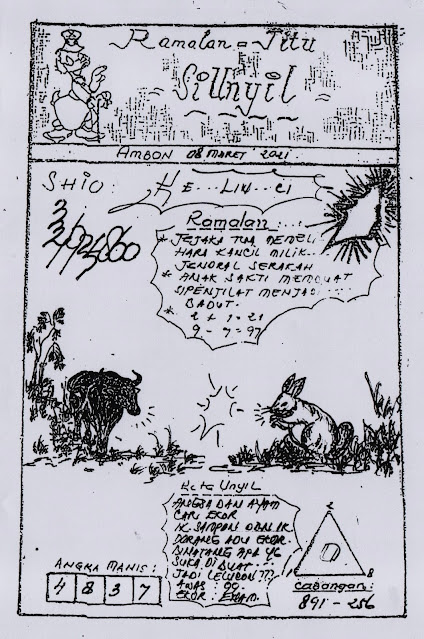 Ramalan = Jitu
SiUnyil
AMBON 08 MARET 2021
SHIO:
KE... LIN... CI
Ramalan....
* JEJAKA TUA
HARA KANCIL MILIK...
JENDRAL SERAKAH
* ANAK SAKTI MEMBUAT
SIPENJILAT
BADUT.
* 2 + 1 = 21
9 - 7 = 97
Kata Unyil
ANGSA DAN AYAM
CARI EKOR
DORANG ADU EKOR.
BINATANG APA YG
SUKA DI BUAT
JADI LELUCON???
EKOR: ENAM.
ANGKA MANIS:
4 8 3 7
2
8
Cabangan:
891 - 256